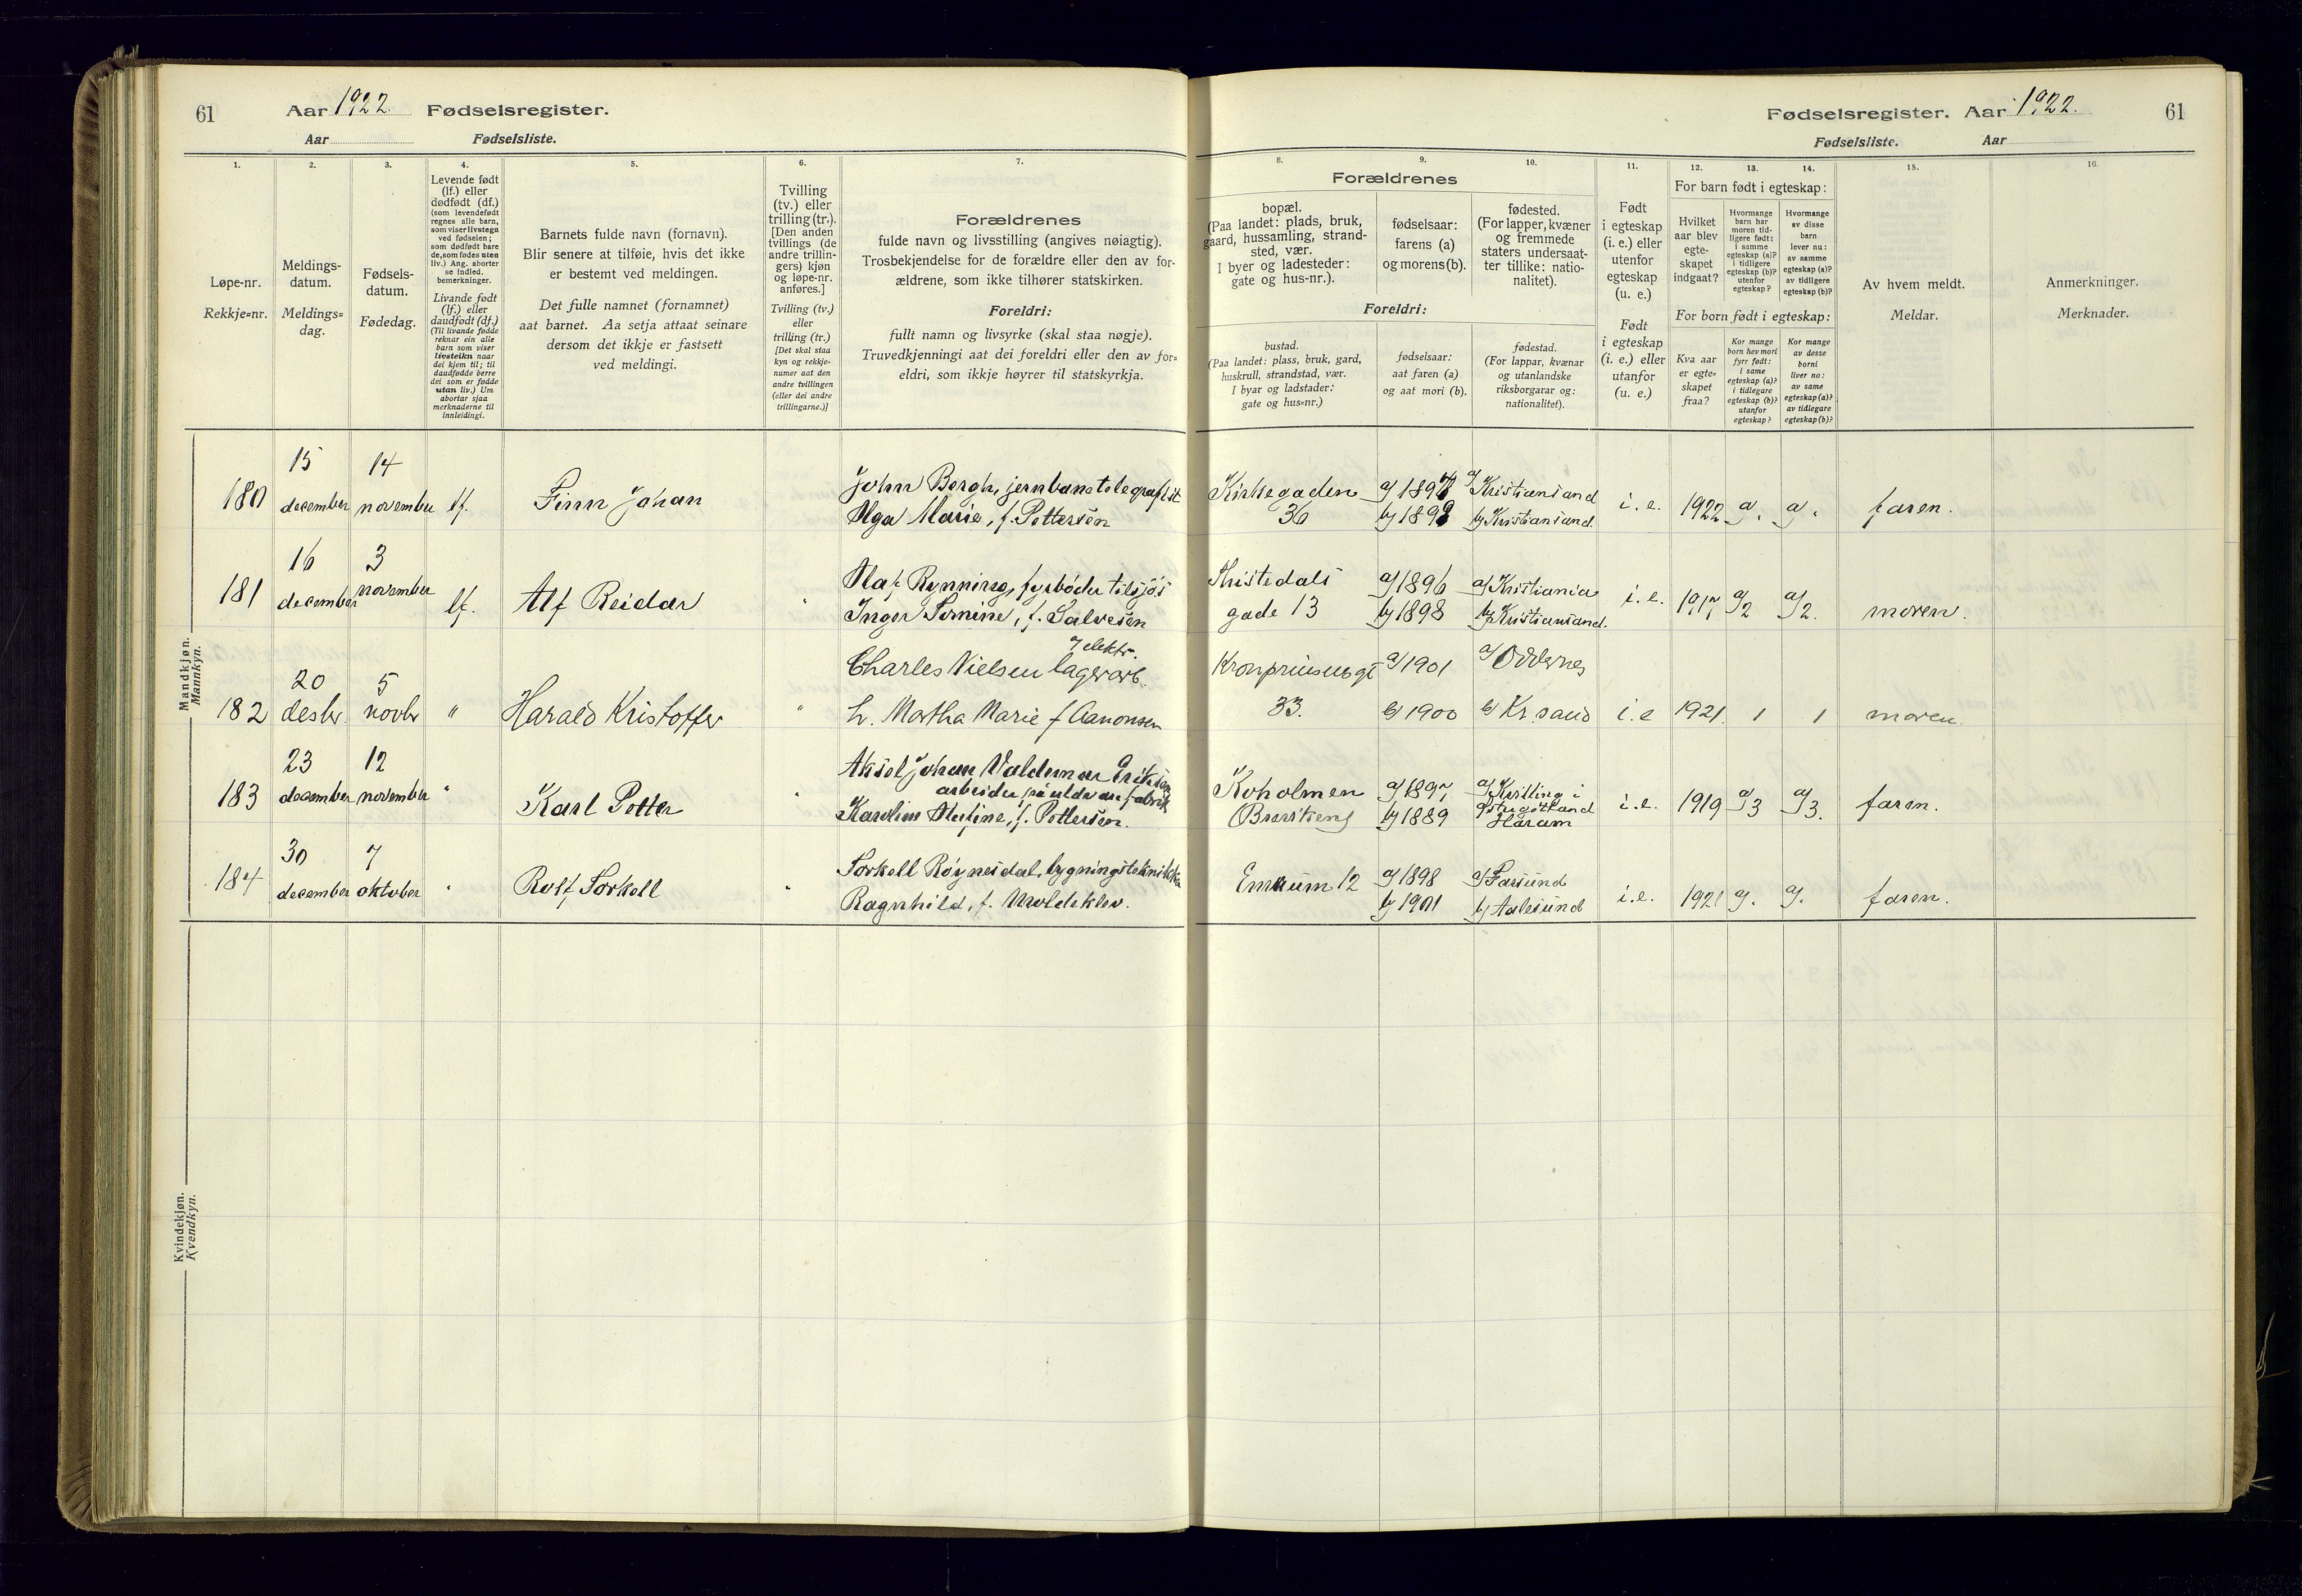 61
Aar 1922. Fødselsregister.
Aar Fødselsliste.
Fødselsregister. Aar 1922.
61
Fødselsliste. Aar
1.
Løpe-nr.
Rekkje=nr.
2.
Meldings-
datum.
Meldings=
dag.
3.
Fødsels-
datum.
Fødedag.
4.
Levende født
(lf.) eller
dødfødt (df.)
(som levendefødt
regnes alle barn,
som viser livstegn
ved fødselen;
som dødfødt bare
de, som fødes uten
liv.) Ang. aborter
se indled.
bemerkninger.
Livande født
(lf.) eller
daudfødt (df.)
(Til livande fødde
reknar ein alle
barn som viser
livsteikn naar
dei kjem til; til
daudfødde berre
dei som er fødde
utan liv.) Um
abortar sjaa
merknaderne til
innleidingi.
5.
Barnets fulde navn (fornavn).
Blir senere at tilføie, hvis det ikke
er bestemt ved meldingen.
Det fulle namnet (fornamnet)
aat barnet. Aa setja attaat seinare
dersom det ikkje er fastsett
ved meldingi.
6.
Tvilling
(tv.) eller
trilling (tr.).
[Den anden
tvillings (de
andre trillin-
gers) kjøn
og løpe-nr.
anføres.]
Tvilling (tv.)
eller
trilling (tr.)
[Det skal staa
kyn og rekkje-
numer aat den
andre tvillingen
(eller dei andre
trillingarne.)]
7.
Forældrenes
fulde navn og livsstilling (angives nøiagtig).
Trosbekjendelse for de forældre eller den av for-
ældrene, som ikke tilhører statskirken.
Foreldri:
fullt namn og livsyrke (skal staa nøgje).
Truvedkjenningi aat dei foreldri eller den av for=
eldri, som ikkje høyrer til statskyrkja.
8.
9.
10.
Forældrenes
bopæl.
(Paa landet: plads, bruk,
gaard, hussamling, strand-
sted, vær.
I byer og ladesteder:
gate og hus-nr.).
fødselsaar:
farens (a)
og morens (b).
fødested.
(For lapper, kvæner
og fremmede
staters undersaat-
ter tillike: natio-
nalitet).
Foreldri:
bustad.
(Paa landet: plass, bruk, gard,
huskrull, strandstad, vær.
I byar og ladstader:
gate og hus=nr.)
fødselsaar:
aat faren (a)
og aat mori (b).
fødestad.
(For lappar, kvænar
og utanlandske
riksborgarar og:
nationalitet).
11.
Født
i egteskap
(i. e.) eller
utenfor
egteskap
(u. e.)
Født
i egteskap
(i. e.) eller
utanfor
(u. e.)
12.
13.
14.
For barn født i egteskap:
Hvilket
aar blev
egte-
skapet
indgaat?
Hvormange
barn har
moren tid-
ligere født:
i samme
egteskap (a)?
i tidligere
egteskap (b)?
utenfor
egteskap?
Hvormange
av disse
barn
lever nu:
av samme
egteskap (a)?
av tidligere
egteskap (b)?
For born født i egteskap:
Kva aar
er egte=
skapet
fraa?
Kor mange
born hev mori
fyrr født:
i same
egteskap (a)?
i tidlegare
egteskap (b)?
utanfor
egteskap?
Kor mange
av desse
borni
liver no:
av same
egteskap (a)?
av tidlegare
egteskap (b)?
15.
Av hvem meldt.
Meldar.
16.
Anmerkninger.
Merknader.
Mandkjøn.
Mannkyn.
180
15
december
14
november
lf.
Finn Johan
John Bergh, jernbanetelegrafist
Olga Marie, f. Pettersen
Kirkegaden
36
a/ 1897
b/ 1898
a/ Kristiansand
b/ Kristiansand.
i. e.
1922
faren.
181
16
december
3
november
lf.
Alf Reidar
"
Olaf Rynning, fyrbøder tilsjøs
Inger Tomine, f. Salvesen
Thistedals
gade 13
a/ 1896
b/ 1898
a/ Kristiania
b/ Kristiansand.
i. e.
1917
a/2
a/2.
moren.
182
20
desbr.
5
novbr
"
Harald Kristoffer
"
elektr.
Charles Nielsen lagerarb.
h. Martha Marie f Aanonsen
Kronprinsensgt
33.
a/ 1901
b/ 1900
a/ Oddernes
b/ Kr.sand
i. e
1921.
1
1
moren.
183
23
december
12
november
"
Karl Petter
Aksel Johan Valdemar Eriksen
arbeider på uldvarefabrik
Karoline Olufine, f. Pettersen.
Koholmen
a/ 1897
b/ 1889
a/ Kvilling i
Østergøtland
Haram
i. e.
1919
a/3
a/3.
faren.
184
30
december
7
oktober
"
Rolf Torkell
"
Torkell Røynesdal, bygningstekniker
Ragnhild, f. Moldeklev.
12
a/ 1898
b/ 1901
a/ Farsund
b/ Aalesund
i. e.
1921
faren.
Kvindekjøn.
Kvendkyn.